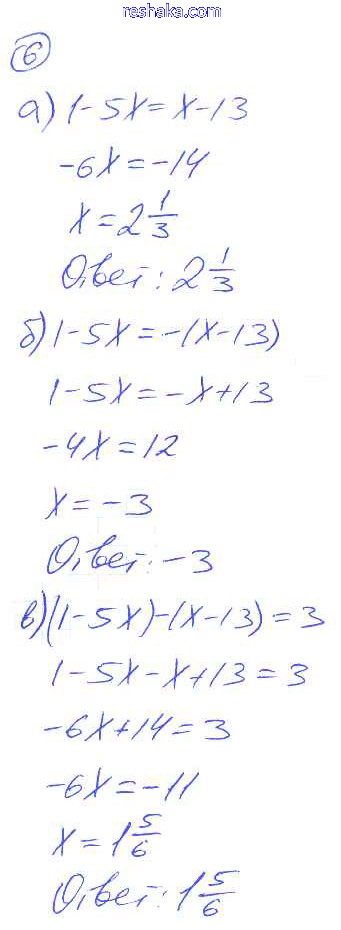 reshaka.com
6
а) 1-5x=x-13
-6x=-14
x=2 1/3
Ответ: 2 1/3
б) 1-5x=-(x-13)
1-5x=-x+13
-4x=12
x=-3
Ответ: -3
в) (1-5x)-(x-13)=3
1-5x-x+13=3
-6x+14=3
-6x=-11
x=1 5/6
Ответ: 1 5/6